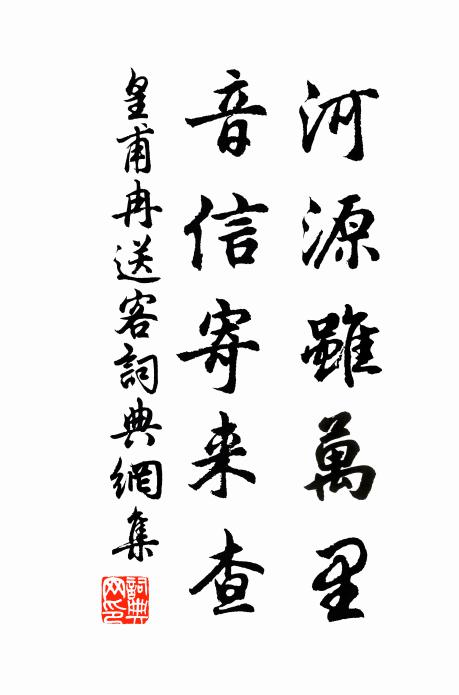 河源雖萬里
音信寄来查
皇甫冉送客詞典網集
詞典网印